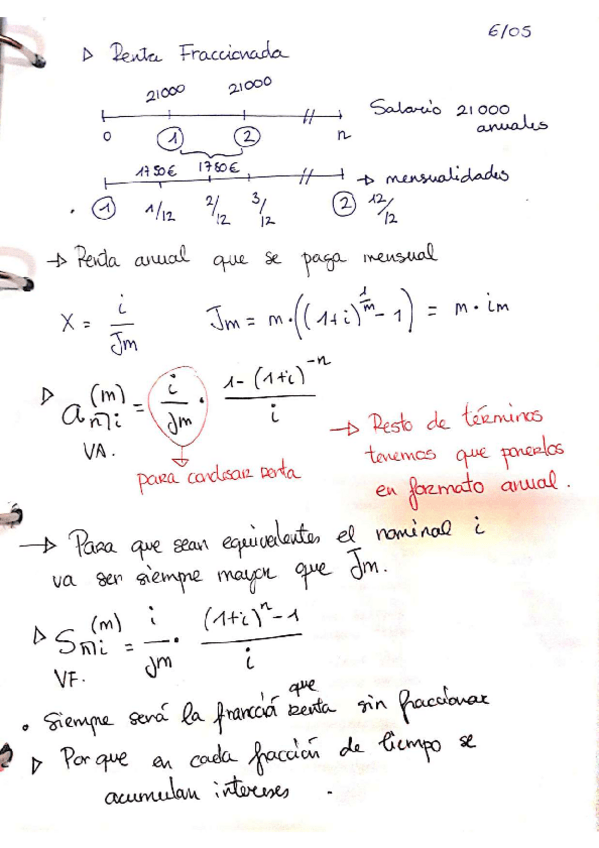 6/05
▷ Renta Fraccionada
21000 21000
Salario 21000 anuales
0 1 2 n
1750€ 1750€
→ mensualidades
1 1/12 2/12 3/12 2 12/12
→ Renta anual que se paga mensual
X = i/Jm Jm = m·((1+i)^(1/m) - 1) = m·im
▷ a^(m) n¬i = i/Jm · (1-(1+i)^-n)/i
VA.
para condesar renta
→ Resto de términos
tenemos que ponerlos
en formato anual.
→ Para que sean equivalentes el nominal i
va ser siempre mayor que Jm.
▷ S^(m) n¬i = i/Jm · ((1+i)^n - 1)/i
VF.
• Siempre será la que renta sin fraccionar
▷ Por que en cada fracción de tiempo se
acumulan intereses.